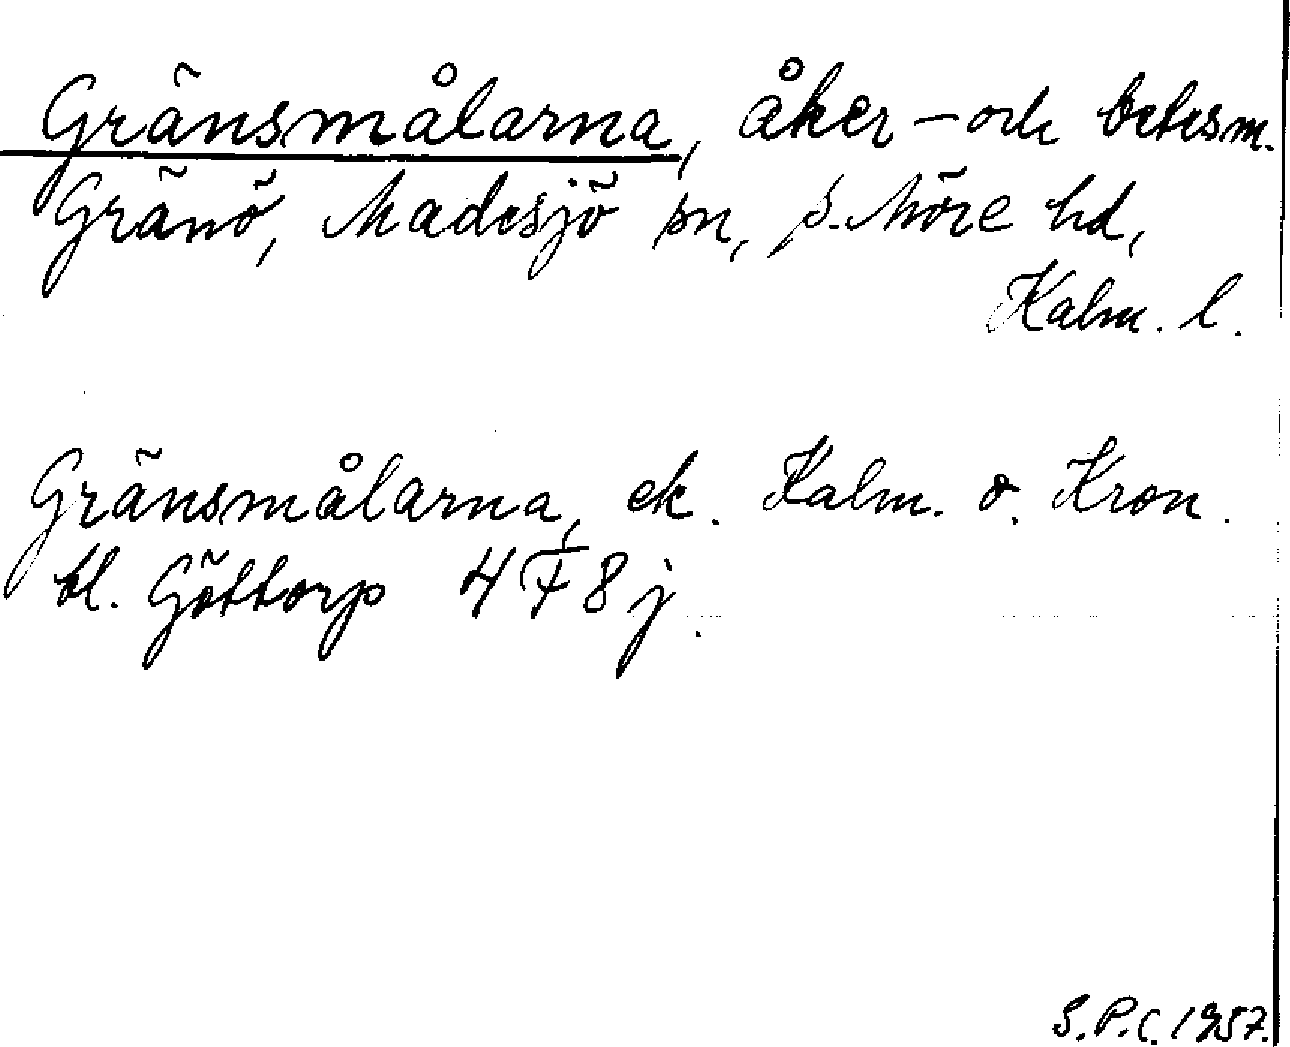 Gränsmålarna, åker- och betesm.
Gränö, Madesjö sn, S. Möre hd,
Kalm. l.
Gränsmålarna, ek. Kalm. o. Kron.
bl. Göttorp 4 F 8 j.
S.P.C. 1957.